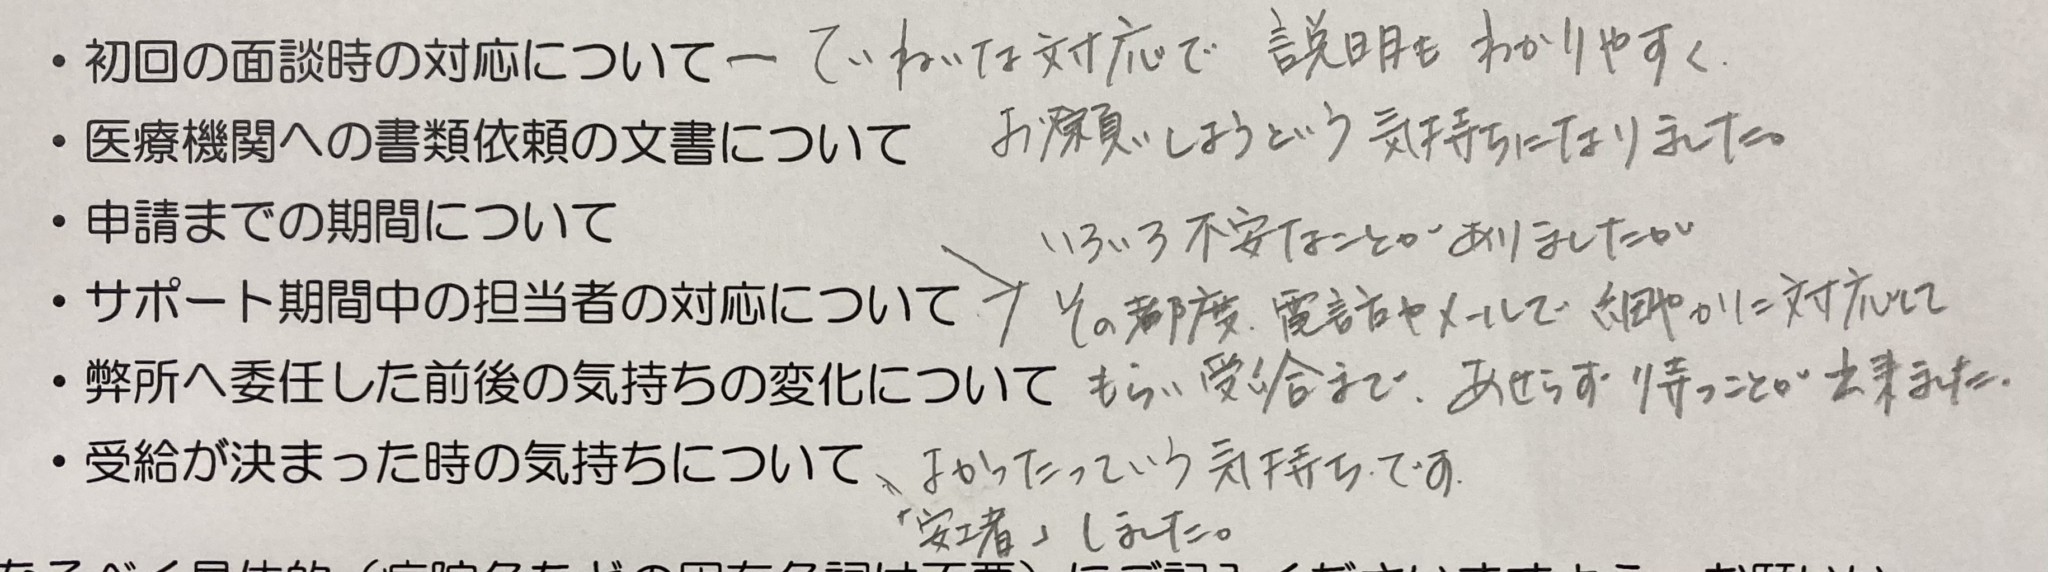 ・初回の面談時の対応について ー ていねいな対応で 説明も わかりやすく.
・医療機関への書類依頼の文書について お願いしようという気持ちになりました。
・申請までの期間について
いろいろ不安なことがありましたが
・サポート期間中の担当者の対応について その都度、電話やメールで 細やかに対応して
・弊所へ委任した前後の気持ちの変化について もらい 受給まで、あせらず 待つことが出来ました.
・受給が決まった時の気持ちについて、よかったっていう気持ちです.
「安
」しました。